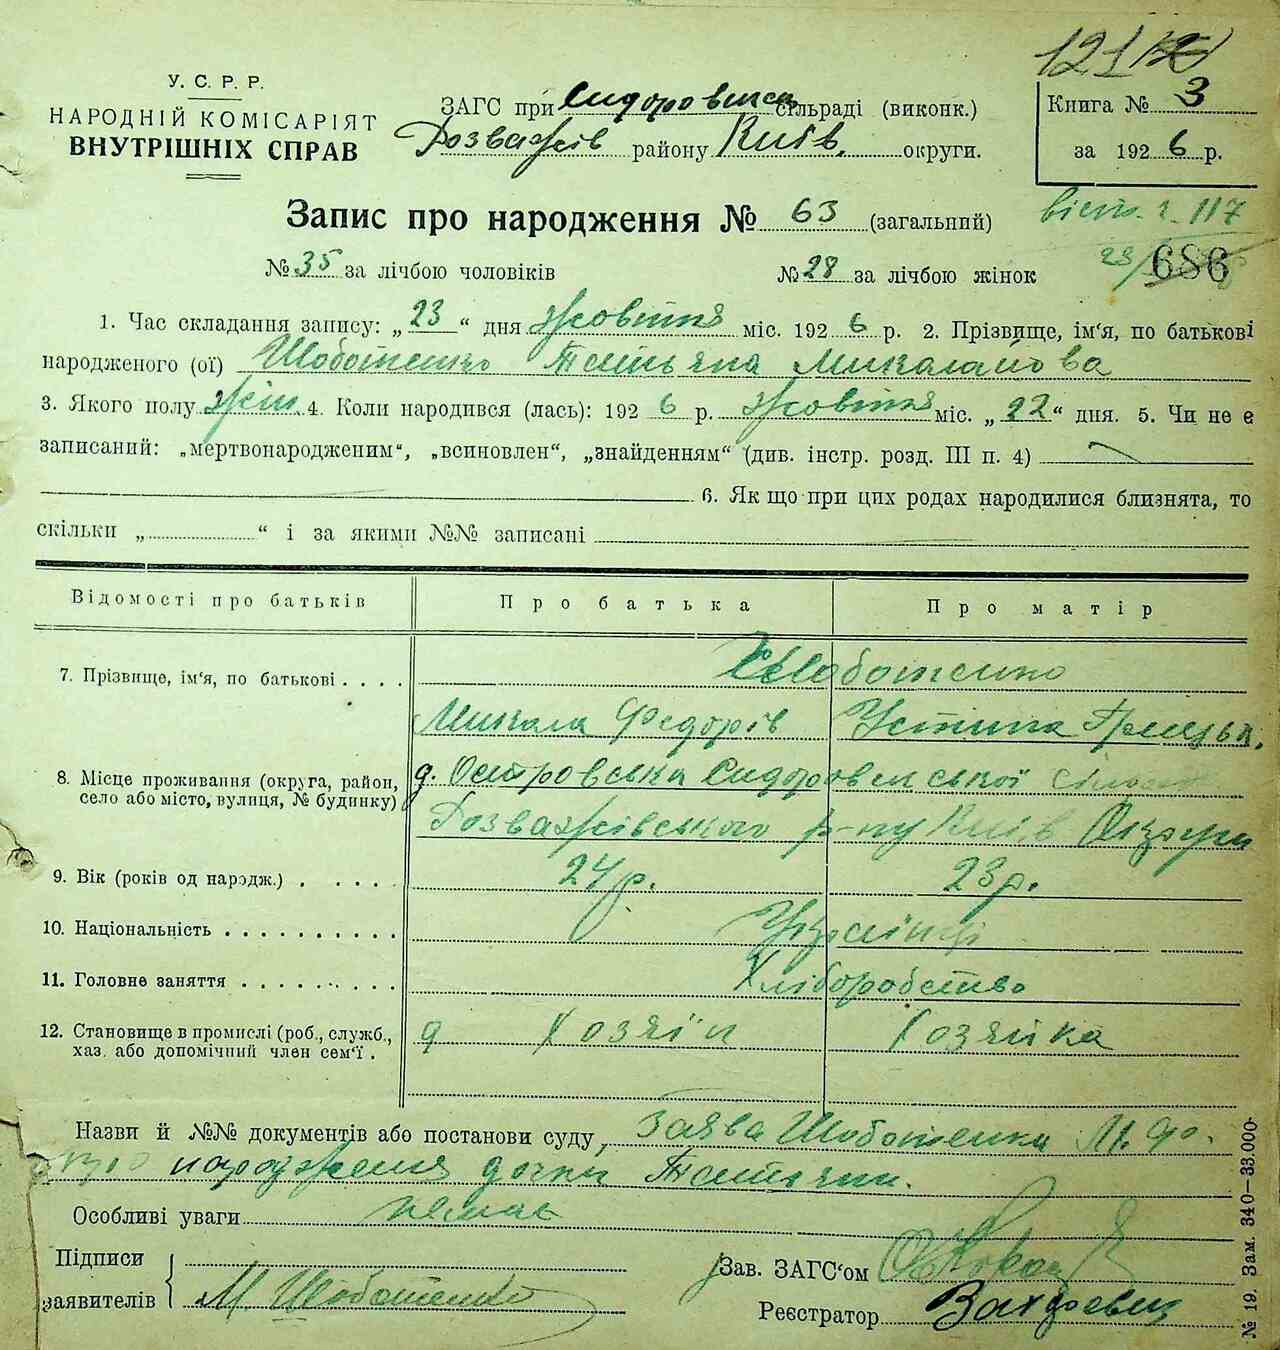 121
У. С. Р. Р.
НАРОДНІЙ КОМІСАРІЯТ
ВНУТРІШНІХ СПРАВ
ЗАГС при Сидоровській сільраді (виконк.)
Розважів району Київ. округи.
Книга № 3
за 1926 р.
Запис про народження № 63 (загальний)
вість. г. 117
№ 35 за лічбою чоловіків № 28 за лічбою жінок
23/ 686
1. Час складання запису: „23“ дня Жовтня міс. 1926 р. 2. Прізвище, ім'я, по батькові
народженого (ої) Шоботенко Тетьяна Миколайова
3. Якого полу жін. 4. Коли народився (лась): 1926 р. Жовтня міс. „22“ дня. 5. Чи не є
записаний: „мертвонародженим“, „всиновлен“, „знайденням“ (див. інстр. розд. III п. 4)
6. Як що при цих родах народилися близнята, то
скільки „ “ і за якими №№ записані
Відомості про батьків Про батька Про матір
7. Прізвище, ім'я, по батькові . . . . Шоботенко
Микола Федорів Устина Грицьк.
8. Місце проживання (округа, район, село або місто, вулиця, № будинку) д. Островська Сидоровської сільр
Розважівського р-ну Київ Округи
9. Вік (років од народж.) . . . . . . 24 р. 23 р.
10. Національність . . . . . . . . . . Українці
11. Головне заняття . . . . . . . . . Хліборобство
12. Становище в промислі (роб., служб., хаз. або допомічний член сем'ї . Хозяїн Хозяйка
Назви й №№ документів або постанови суду, Заява Шоботенка М. Ф.
про народження дочки Тетяни.
Особливі уваги немає
Підписи
заявителів М Шоботенко
Зав. ЗАГС'ом
Реєстратор
№ 19. Зам. 340—33.000